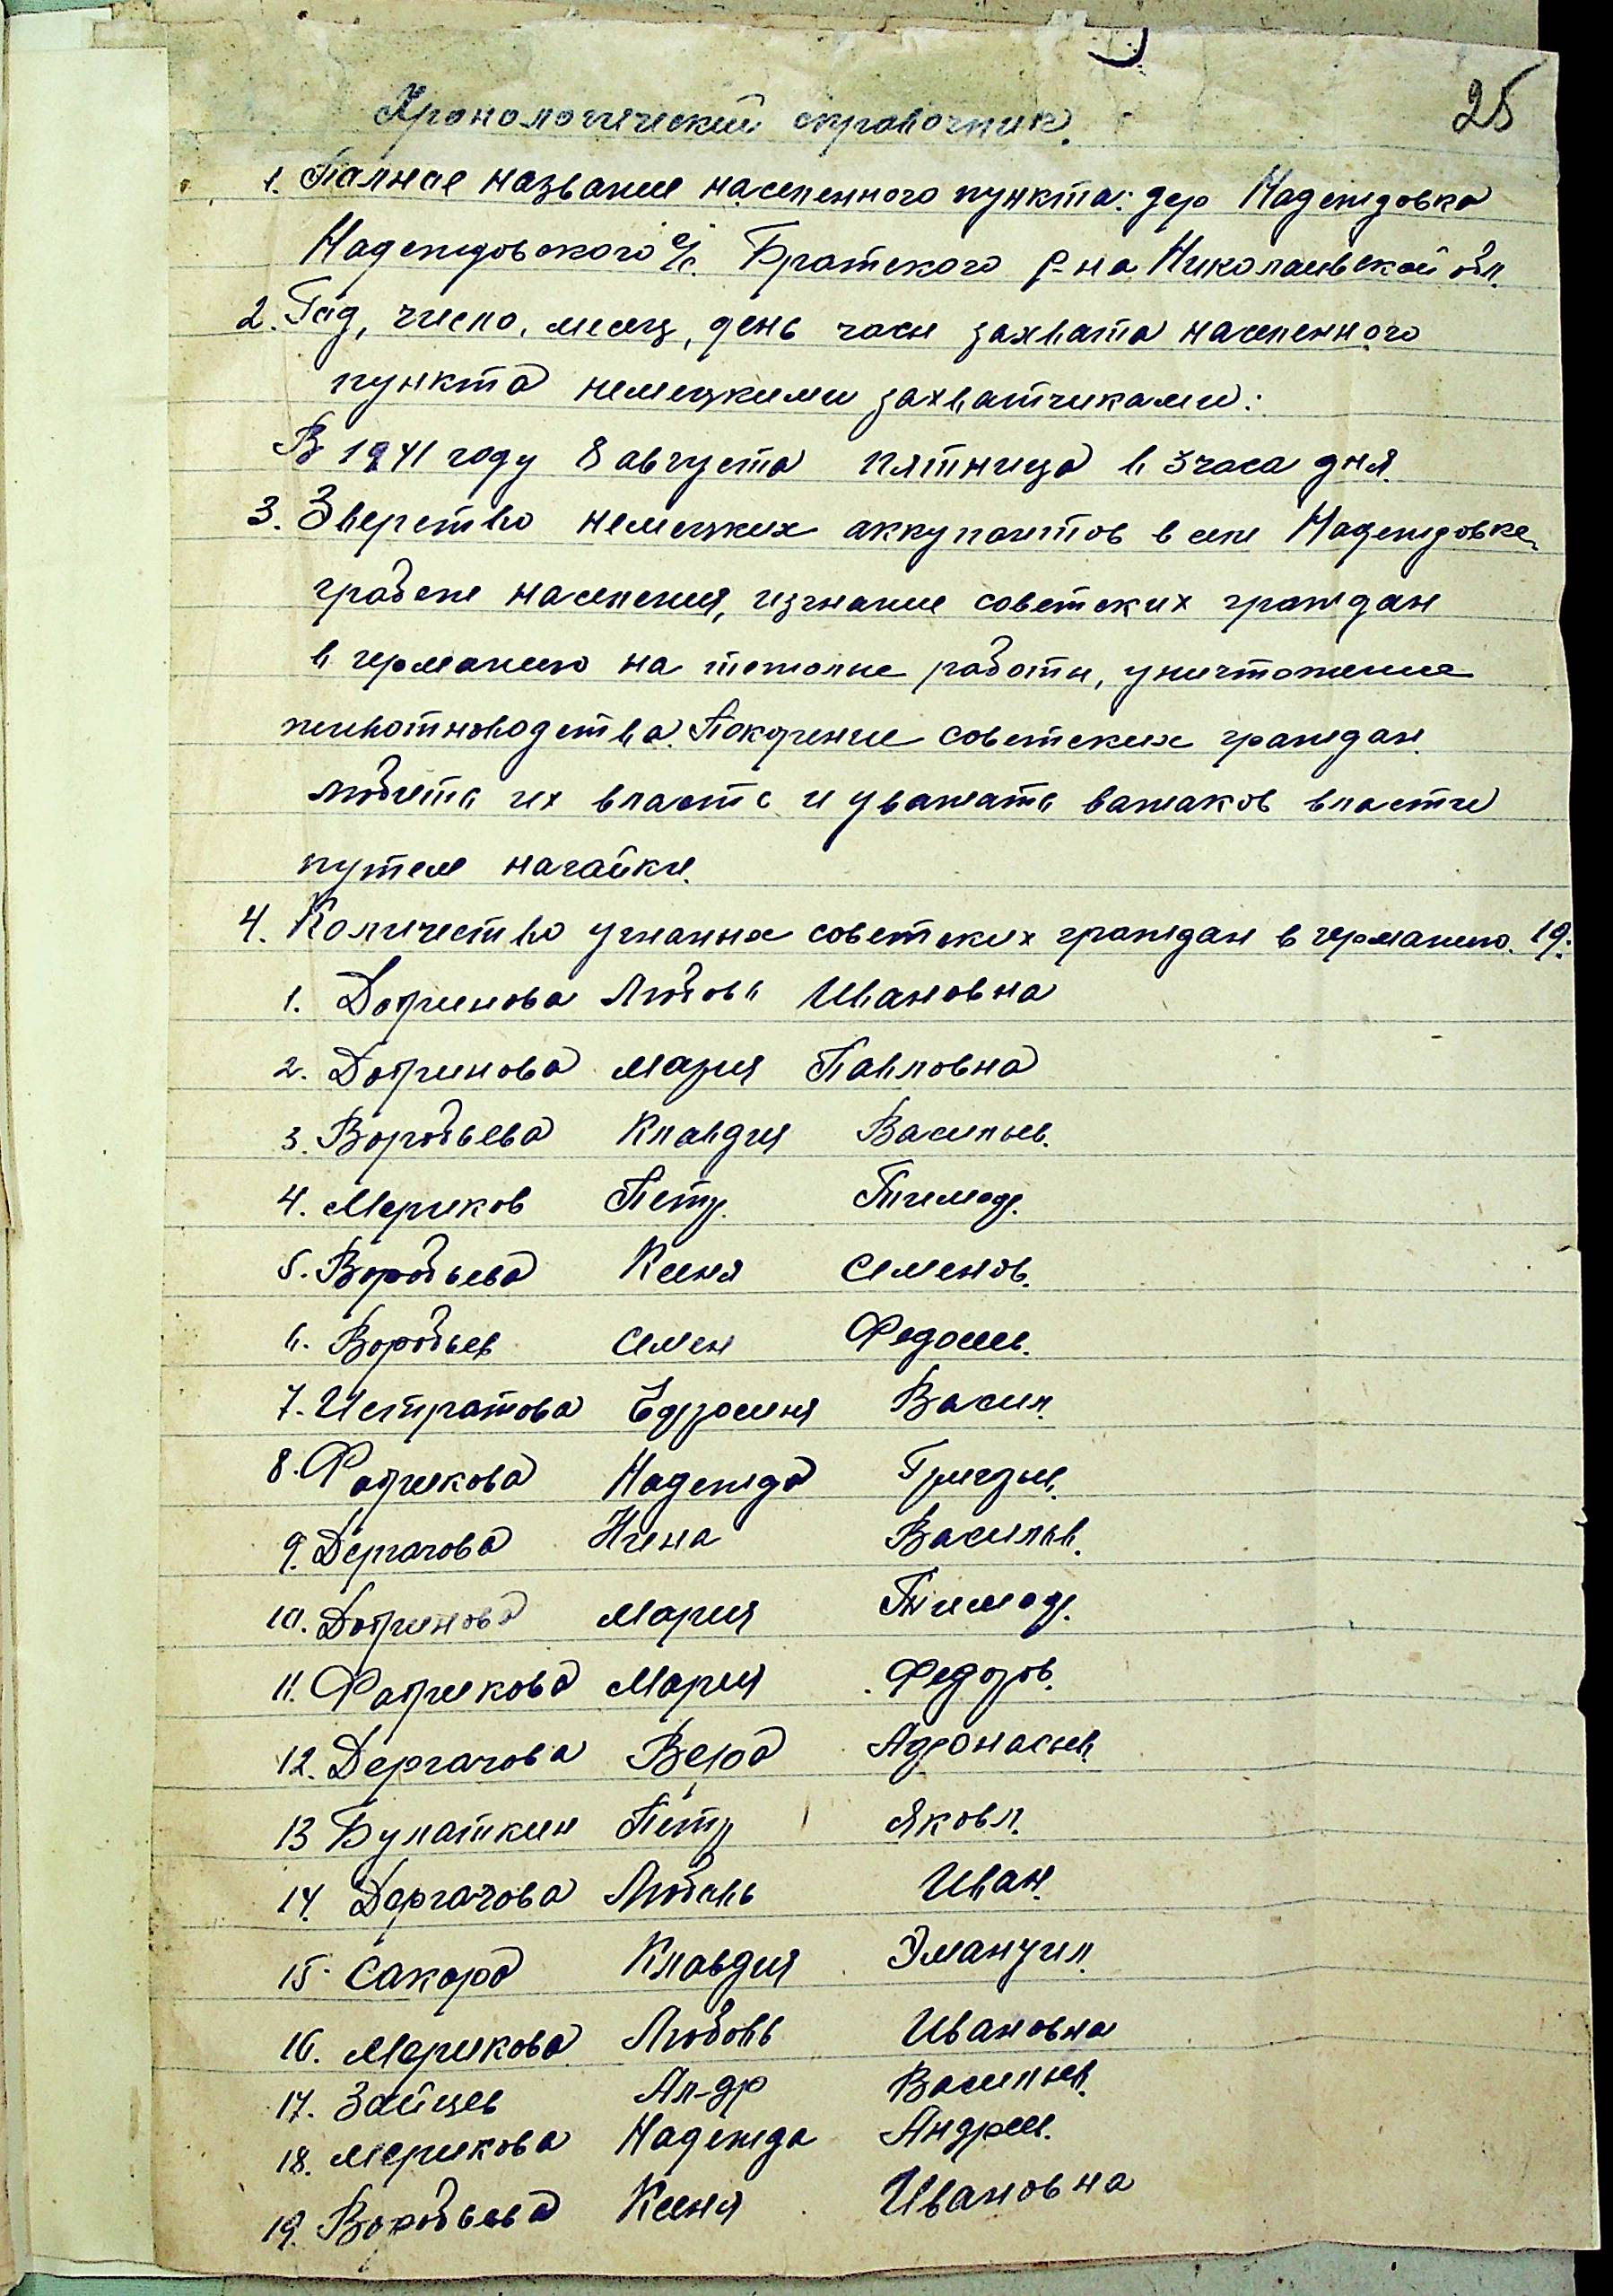 25
Хронологический справочник.
1. Полное название населенного пункта: дер Надеждовка
Надеждовского с/с. Братского р-на Николаевской обл.
2. Год, число, месяц, день часы захвата населенного
пункта немецкими захватчиками:
В 1941 году 8 августа пятница в 3 часа дня.
3. Зверство немецких аккупантов в селе Надеждовке,
грабеж населения, изгнание советских граждан
в германию на тяжолые работы, уничтожение
животноводства. Покорение советских граждан.
любить их власть и уважать важаков власти
путем нагайки.
4. Количество угнанных советских граждан в германию. 19.
1. Любовь Ивановна
2. Мария Павловна
3. Воробьева Клавдия Васильев.
4. Мериков Петр. Тимоф.
5. Воробьева Ксеня Семенов.
6. Воробьев Семен Федосеев.
7. Истратова Ефросиня Васил.
8. Фабрикова Надежда Григорьев.
9. Дергачова Нина Васильев.
10. Мария Тимоф.
11. Фабрикова Мария Федоров.
12. Дергачова Вера Афонасьев.
13 Булаткин Петр Яковл.
14. Дергачова Любовь Иван.
15. Сакара Клавдия Эмануил.
16. Мерикова Любовь Ивановна
17. Зайцев Ал-др Васильев.
18. Мерикова Надежда Андреев.
19. Воробьева Ксеня Ивановна